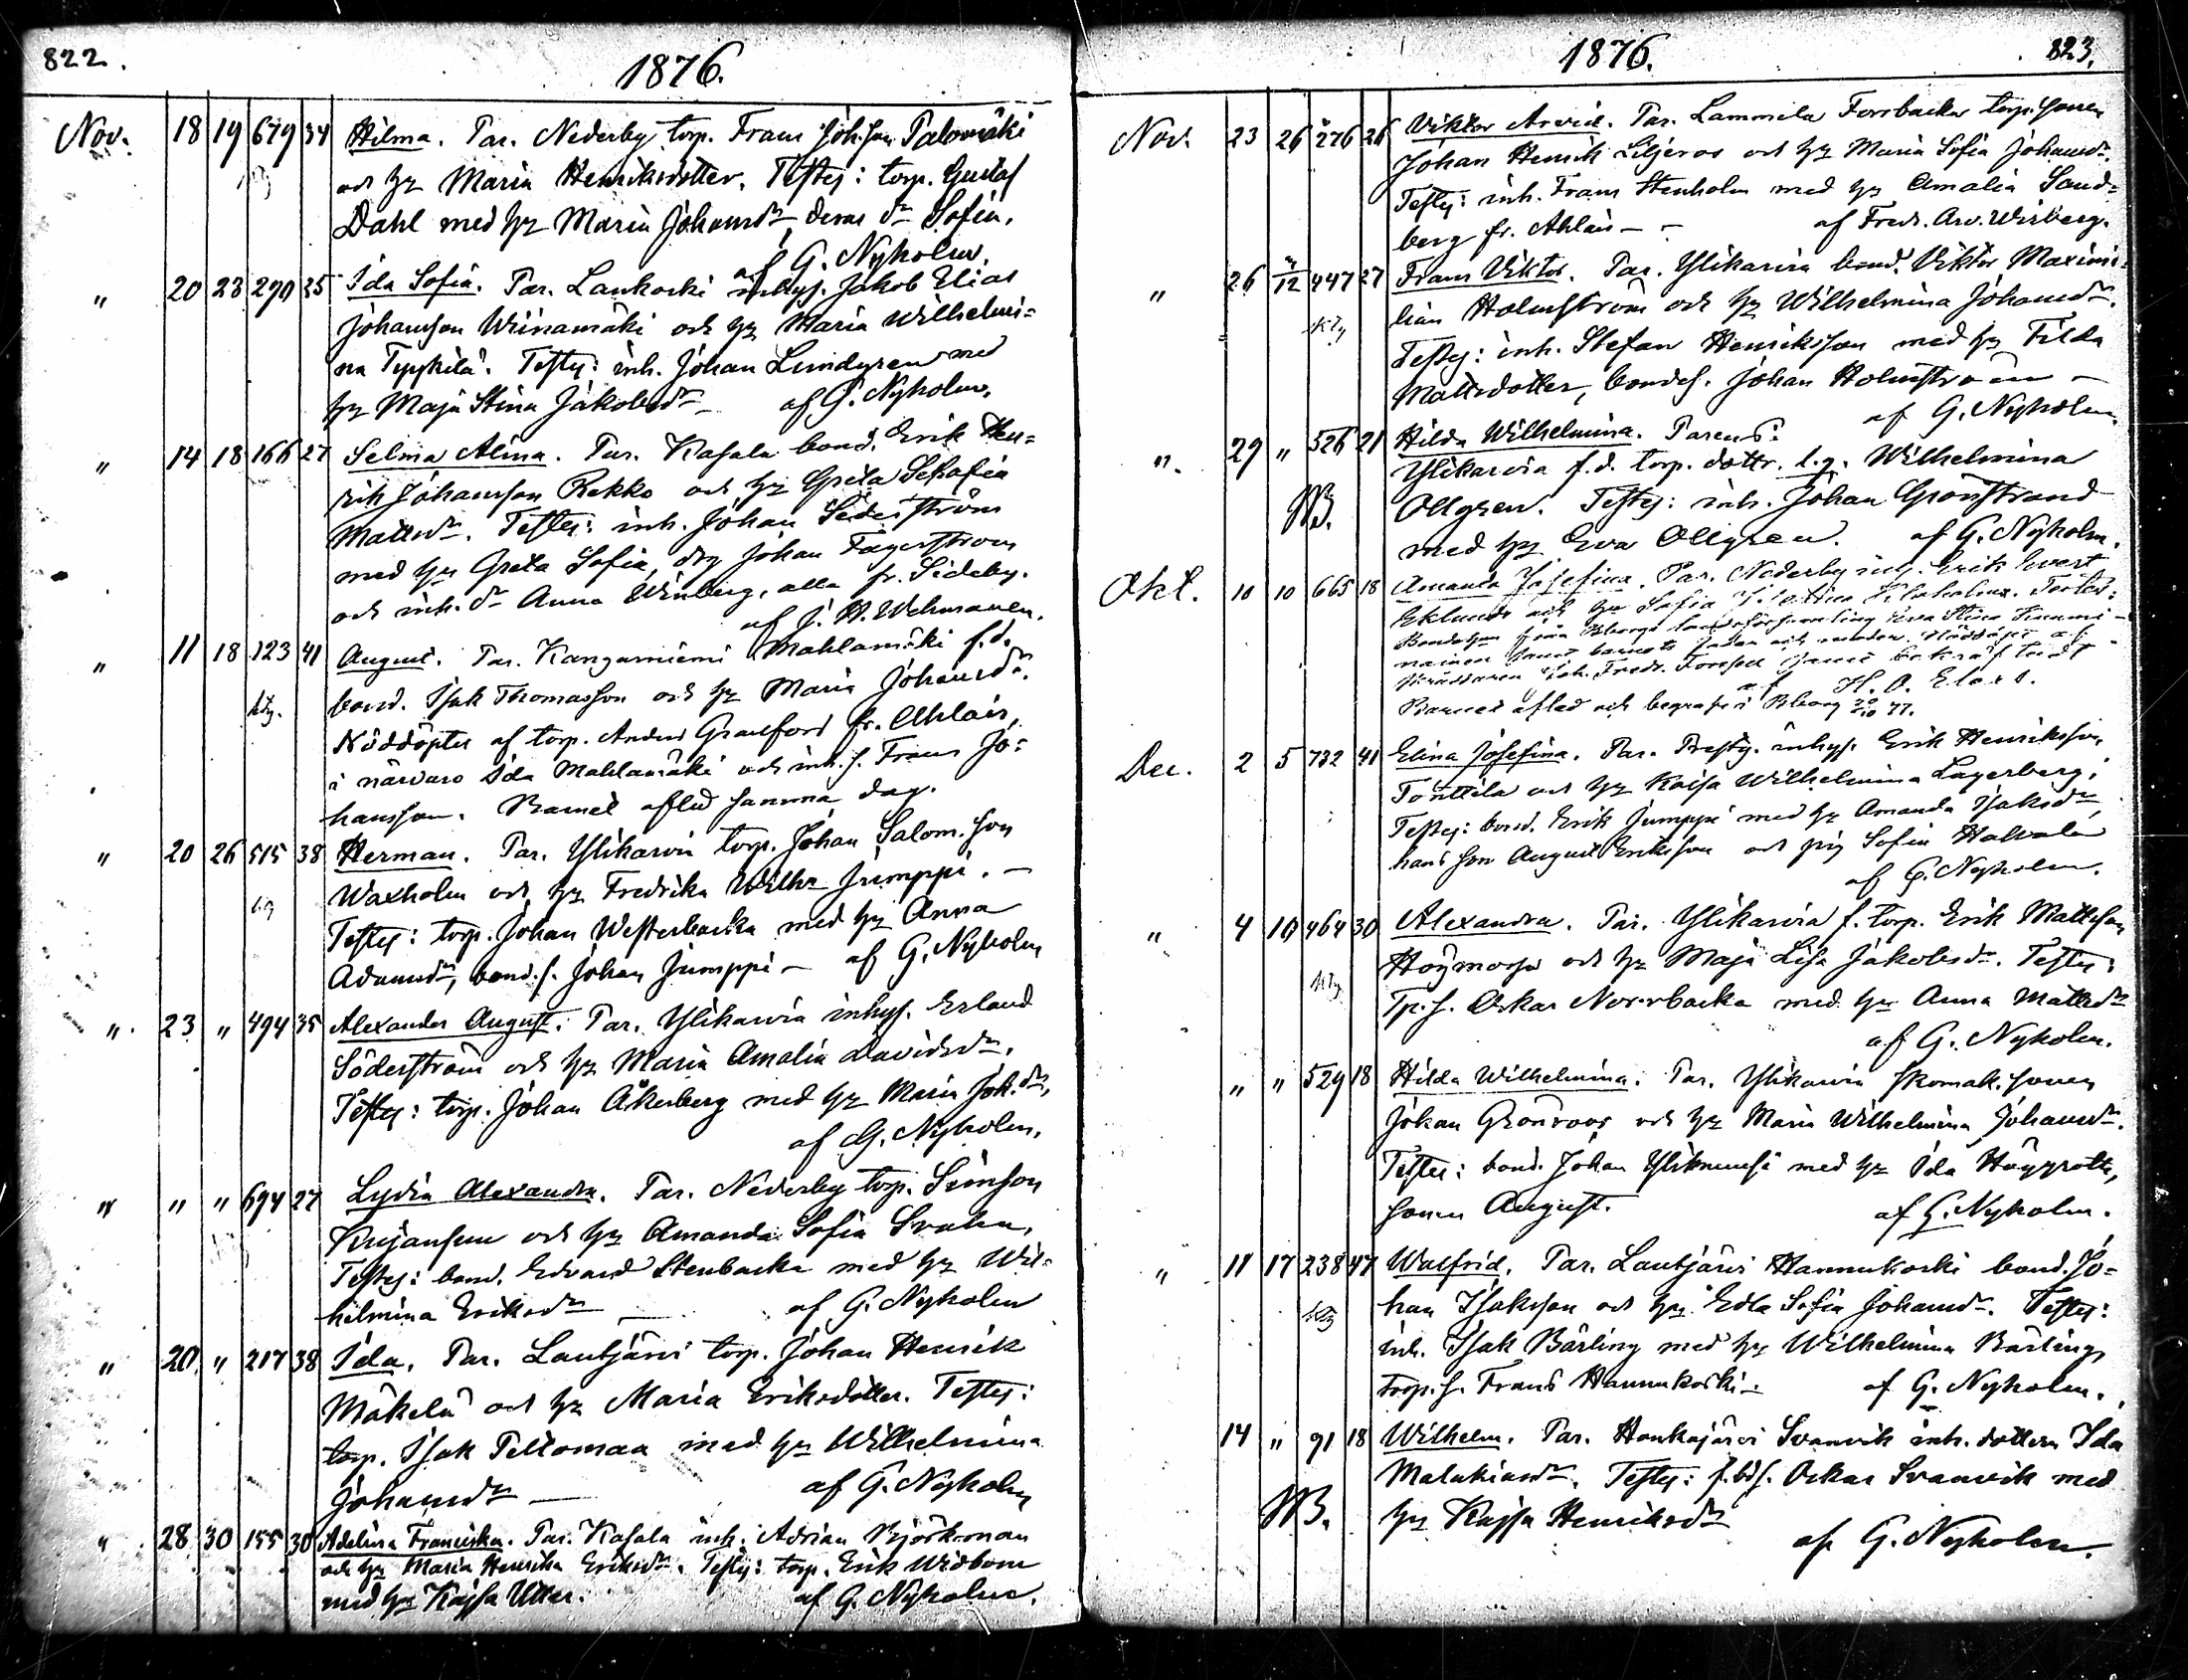 822.
1876.
Nov. 18 19 679 34 Hilma. Par. Nederby torp. Frans Joh:son Palomäki
och hu Maria Henriksdotter. Testes: torp. Gustaf
Dahl med hu Maria Johansdr, deras dr Sofia.
af G. Nyholm.
" 20 23 290 35 Ida Sofia. Par. Lankoski inhys. Jakob Elias
Johansson Wiinamäki och hu Maria Wilhelmi-
na Testes: inh. Johan Lindgren med
hu Maja Stina Jakobsdr — af G. Nyholm.
" 14 18 166 27 Selma Alina. Par. Kasala bond. Erik Hen-
rik Johansson Rekko och hu Greta Serafia
Mattsdr. Testes: inh. Johan Söderström
med hu Greta Sofia, drg Johan Fagerström
och inh. dr Anna Winberg, alla fr. Sideby.
af J. H. Wehmanen.
" 11 18 123 41 August. Par. Kangasniemi Mahlamäki f.d.
bond. Isak Thomasson och hu Maria Johansdr.
Nöddöptes af torp. Anders Granfors fr. Ahlais,
i närvaro Ida Mahlamäki och inh. s. Frans Jo-
hansson. Barnet afled samma dag.
" 20 26 515 38 Herman. Par. Ylikarvia torp. Johan Salom. son
Waxholm och hu Fredrika Wilha Jumppi. —
Testes: torp. Johan Westerbacka med hu Anna
Adamsdr, bond. s. Johan Jumppi — af G. Nyholm
" 23 " 494 35 Alexander August. Par. Ylikarvia inhys. Erland
Söderström och hu Maria Amalia Davidsdr.
Testes: torp. Johan Åkerberg med hu Maria Joh.dr,
af G. Nyholm.
" " " 694 27 Lydia Alexandra. Par. Nederby torp. Simson
och hu Amanda Sofia Svahn,
Testes: bond. Edvard Stenbacka med hu Wil-
helmina Eriksdr — af G. Nyholm
" 20 " 217 38 Ida. Par. Lautjärvi torp. Johan Henrik
Mäkelä och hu Maria Eriksdotter. Testes:
torp. Isak Peltomaa med hu Wilhelmina
Johansdr — af G. Nyholm
" 28 30 155 30 Adelina Franciska. Par. Kasala inh. Adrian Björkman
och hu Maria Henrika Eriksdr. Testes: torp. Erik Widbom
med hu Kajsa Utter. af G. Nyholm.
1876.
823.
Nov. 23 26 276 26 Viktor Arvid. Par. Lammela Forrbacka torp. sonen
Johan Henrik Liljeros och hu Maria Sofia Johansdr.
Testes: inh. Frans Stenholm med hu Amalia Sand-
berg fr. Ahlais — af Fredr. Arv. Wirberg.
" 26 12 447 27 Frans Viktor. Par. Ylikarvia bond. Viktor Maximi-
lian Holmström och hu Wilhelmina Johansdr.
Testes: inh. Stefan Henriksson med hu Tilda
Mattsdotter, bondes. Johan Holmström —
af G. Nyholm.
" 29 " 526 21 Hilda Wilhelmina. Parens:
Ylikarvia f.d. torp. dottr. l.g. Wilhelmina
NB. Ollgren. Testes: inh. Johan Grönstrand
med hu Eva Ollgren. af G. Nyholm.
Okt. 10 10 665 18 Amanda Josefina. Par. Nederby Erik Evert
Eklund och hu Sofia
Bondeson från Bborgs landsförsamling Eva Stina
samt barnets fader och moder. Nöddöpt af
Joh. Fredr. Forssell samt bekräftadt
af H. O. Elo
Barnet afled och begrafs i Bborg 77.
Dec. 2 5 732 41 Elina Josefina. Par. Prestg. inhys. Erik Henriksson
Tonttila och hu Kaisa Wilhelmina Lagerberg.
Testes: bond. Erik Jumppi med hu Amanda Isaksdr
hans son August Eriksson och pig Sofia
af G. Nyholm.
" 4 10 464 30 Alexandra. Par. Ylikarvia f. torp. Erik Mattsson
Höymossa och hu Maja Lisa Jakobsdr. Testes:
Tp. s. Oskar Norrbacka med hu Anna Mattsdr
af G. Nyholm.
" " 529 18 Hilda Wilhelmina. Par. Ylikarvia skomak. sonen
Johan Grönroos och hu Maria Wilhelmina Johansdr.
Testes: bond. Johan med hu Ida
sonen August. af G. Nyholm.
" 11 17 238 47 Walfrid. Par. Lautjärvi Hannukoski bond. Jo-
han Isaksson och hu Edla Sofia Johansdr. Testes:
inh. Isak Bärling med hu Wilhelmina Bärling,
torp. s. Frans Hannukoski — af G. Nyholm.
14 " 91 18 Wilhelm. Par. Honkajärvi Svanvik inh. dottern Ida
Malakiasdr. Testes: f. bds. Oskar Svanvik med
NB. hu Kajsa Henriksdr
af G. Nyholm.